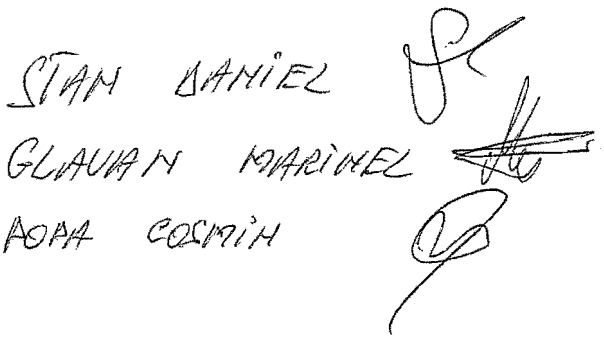 STAN DANIEL
GLAVAN MARINEL
POPA COSMIN